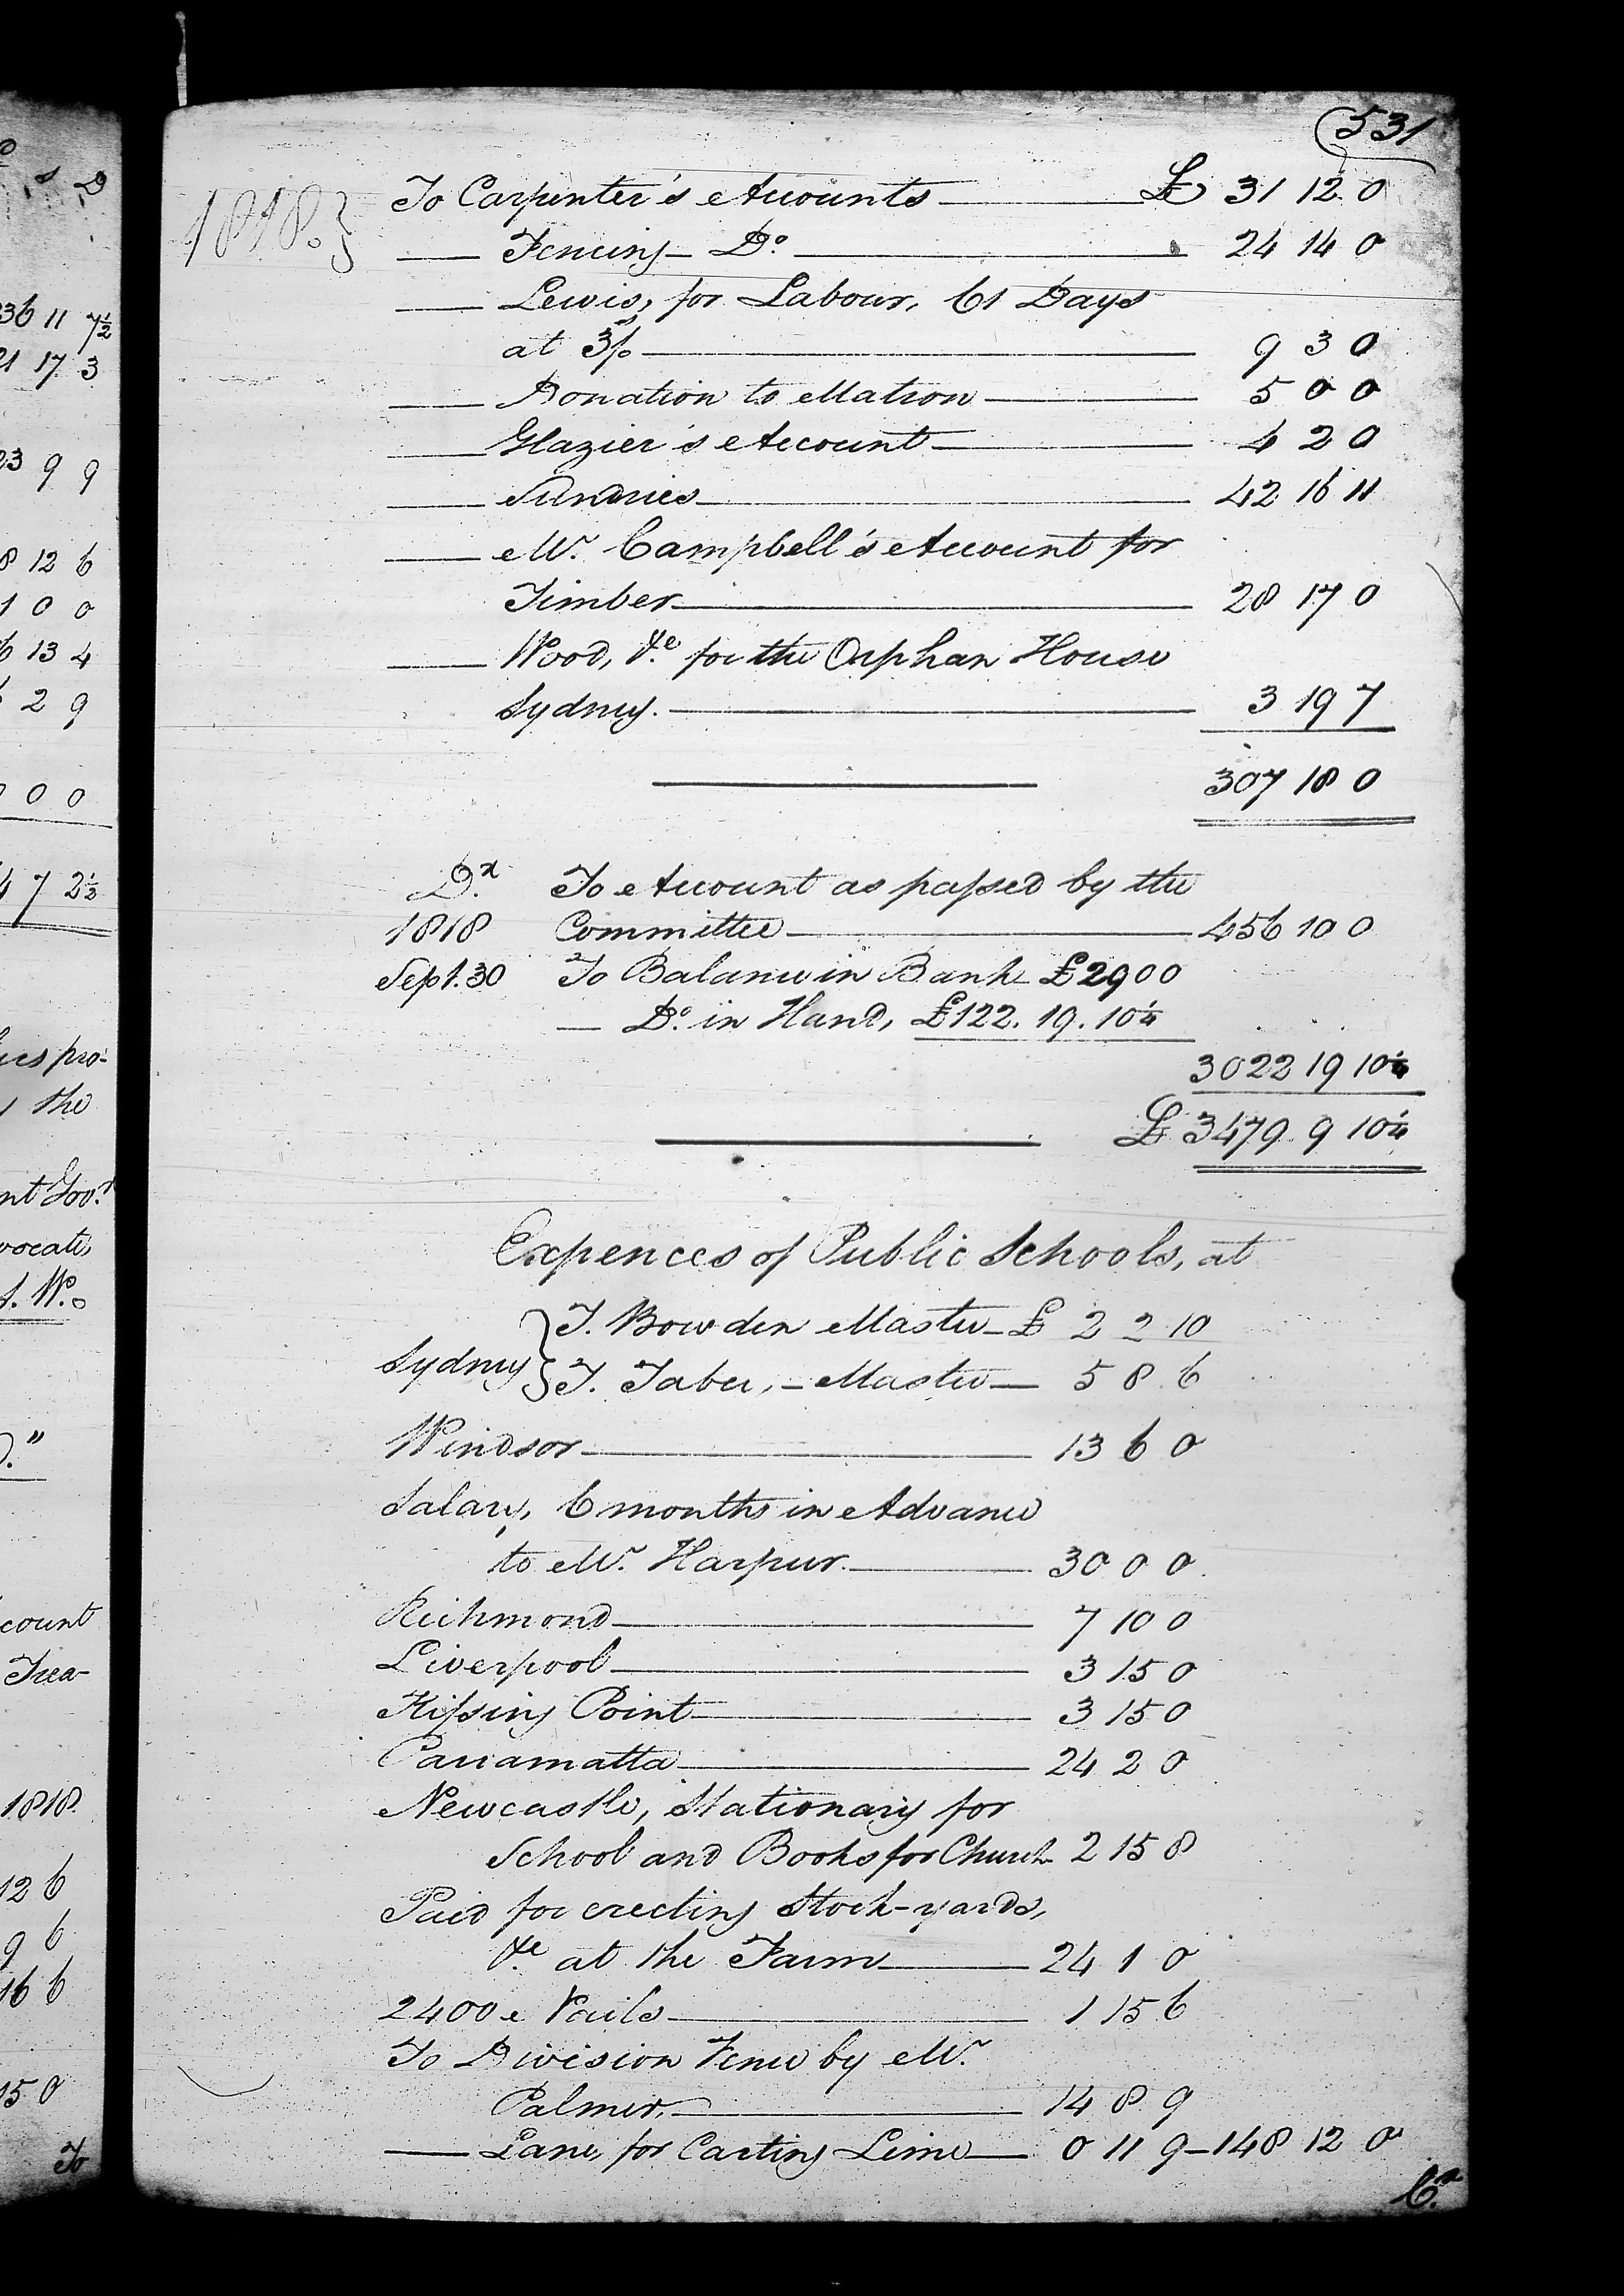 D
s D
36 11 7½
21 17 3
23 9 9
8 12 6
1 0 0
6 13 4
2 9
0 0
4 7 2½
pro-
the
nt Govr
vocate,
S. W.
D."
count
Trea-
1818.
12 6
9 6
16 6
15 0
To
531
1818.}
To Carpenter's Accounts £ 31 12 0
— Fencing – Do. 24 14 0
— Lewis, for Labour, 61 Days
at 3s/. 9 3 0
— Donation to Matron 5 0 0
— Glazier's Account 4 2 0
— Sundries 42 16 11
— Mr. Campbell's Account for
Timber 28 17 0
— Wood, &c. for the Orphan House
Sydney. 3 19 7
307 18 0
Dr. To Account as passed by the
1818 Committee 456 10 0
Sept. 30 To Balance in Bank £2900
— Do. in Hand, £122. 19. 10¼
3022 19 10¼
£ 3479 9 10¼
Expences of Public Schools, at
Sydney { T. Bowden Master – £ 2 2 10
T. Taber, – Master — 5 8 6
Windsor 13 6 0
Salary, 6 months in Advance
to Mr. Harpur. 30 0 0
Richmond 7 10 0
Liverpool 3 15 0
Kissing Point 3 15 0
Parramatta 24 2 0
Newcastle, Stationary for
School and Books for Church 2 15 8
Paid for erecting Stock-yards,
&c. at the Farm 24 1 0
2400 Nails 1 15 6
To Division Fence by Mr.
Palmer, 14 8 9
— Lane, for Carting Lime — 0 11 9 – 148 12 0
Cr.